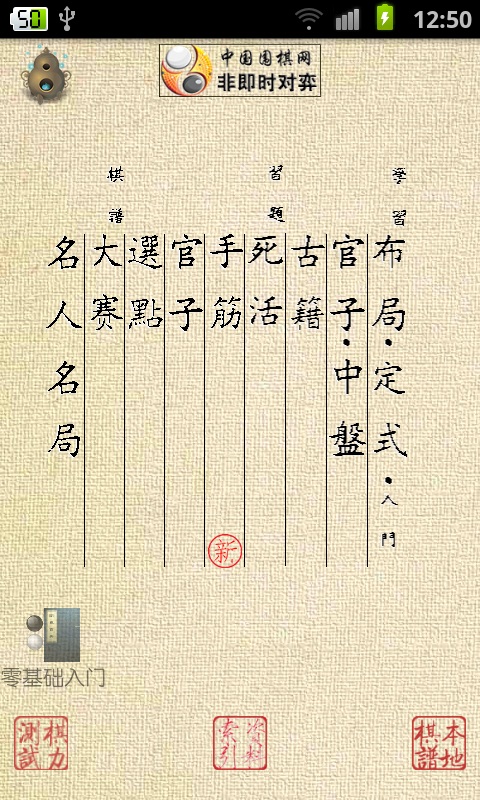 50
12:50
中国围棋网
非即时对弈
學習
布局·定式·入門
官子·中盤
古籍
習題
死活
手筋
新
官子
選點
棋譜
大賽
名人名局
零基础入门
棋力測試
資料索引
本地棋譜